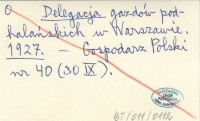 O Delegacja gazdów pod-
halańskich w Warszawie.
1927. - Gospodarz Polski
nr 40 (30 IX).
BT/011/0112